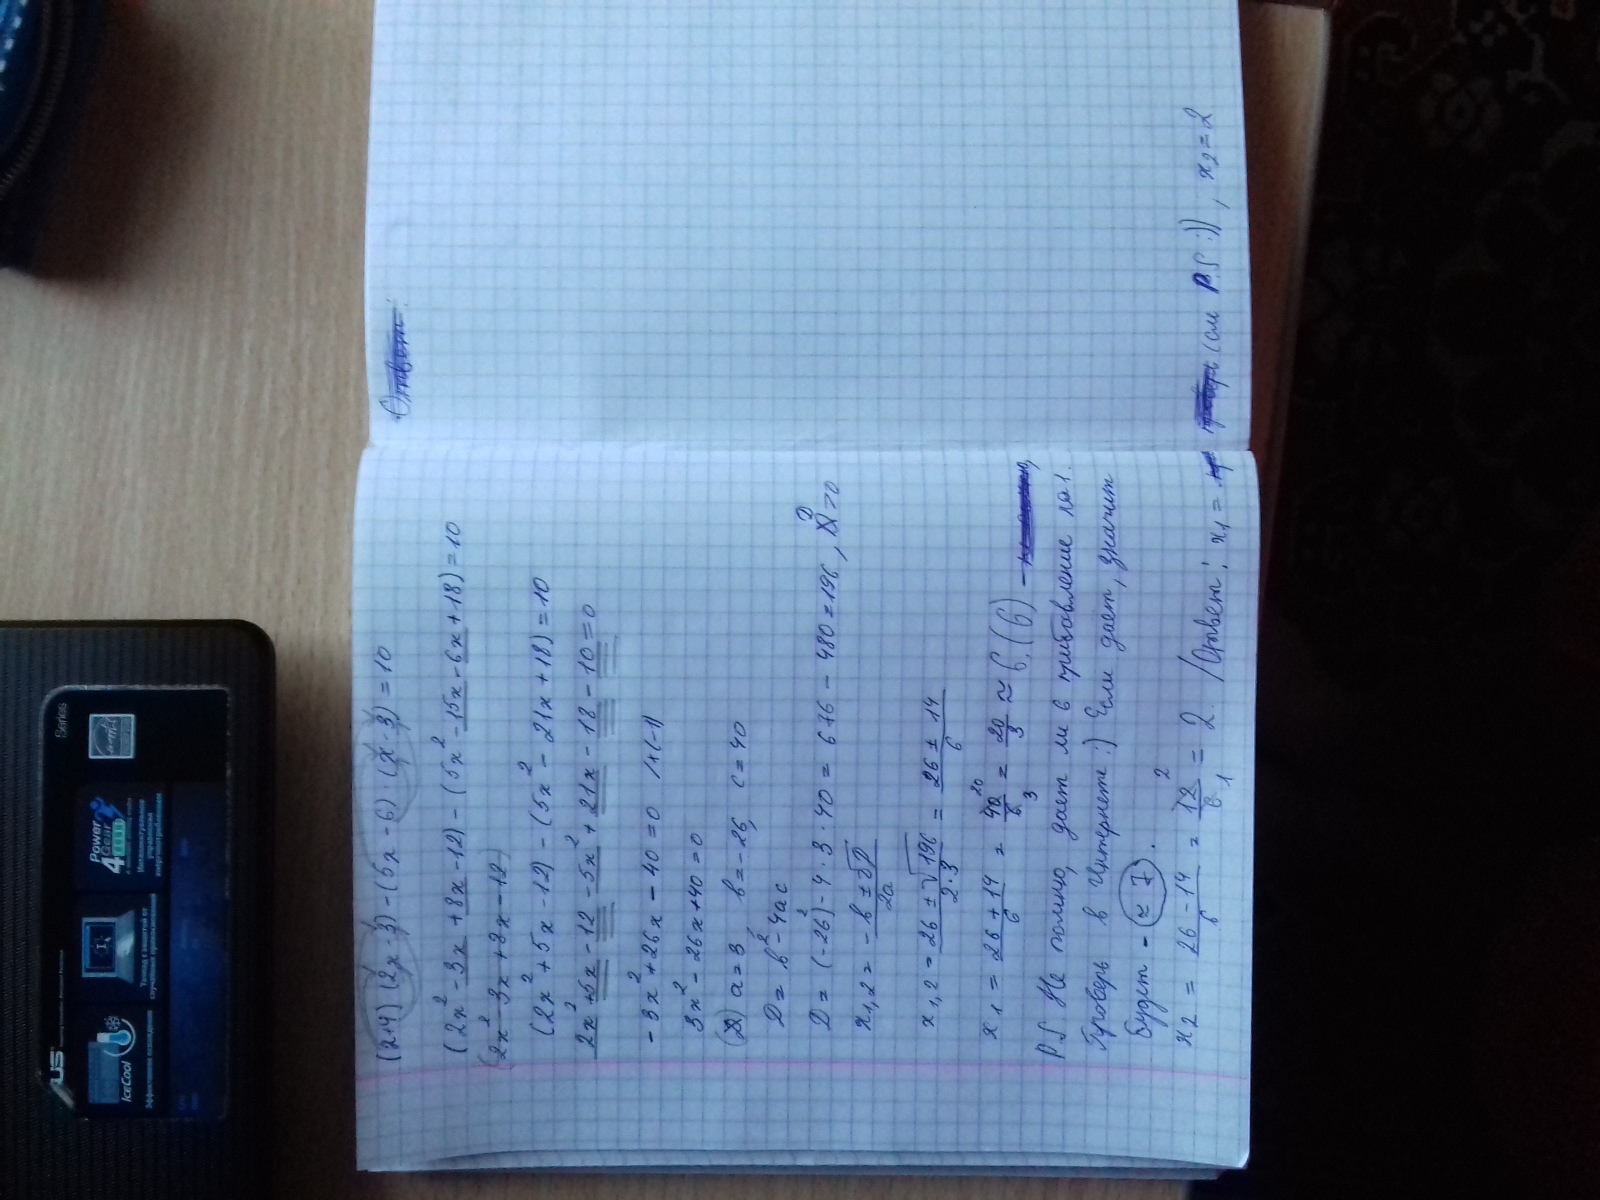 (2+4)(2x-3)-(5x-6)·(x-3)=10
(2x²-3x+8x-12)-(5x²-15x-6x+18)=10
(2x²-3x+8x-12)
(2x²+5x-12)-(5x²-21x+18)=10
2x²+5x-12-5x²+21x-18-10=0
-3x²+26x-40=0 /×(-1)
3x²-26x+40=0
a=3 b=-26, c=40
D=b²-4ac
D=(-26)²-4·3·40=676-480=196, D>0
x1,2=-b±√D/2a
x1,2=26±√196/2·3=26±14/6
x1=26+14/6=40/6=20/3≈6,(6)-
P.S Не помню, дает ли 6 прибавление на 1.
Проверь в Интернете:) Если дает, значит
будет - ≈7.
x2=26-14/6=12/6=2. /Ответ: x1= (см P.S:)), x2=2
Ответ:
Series
Power
4 Gear
IceCool